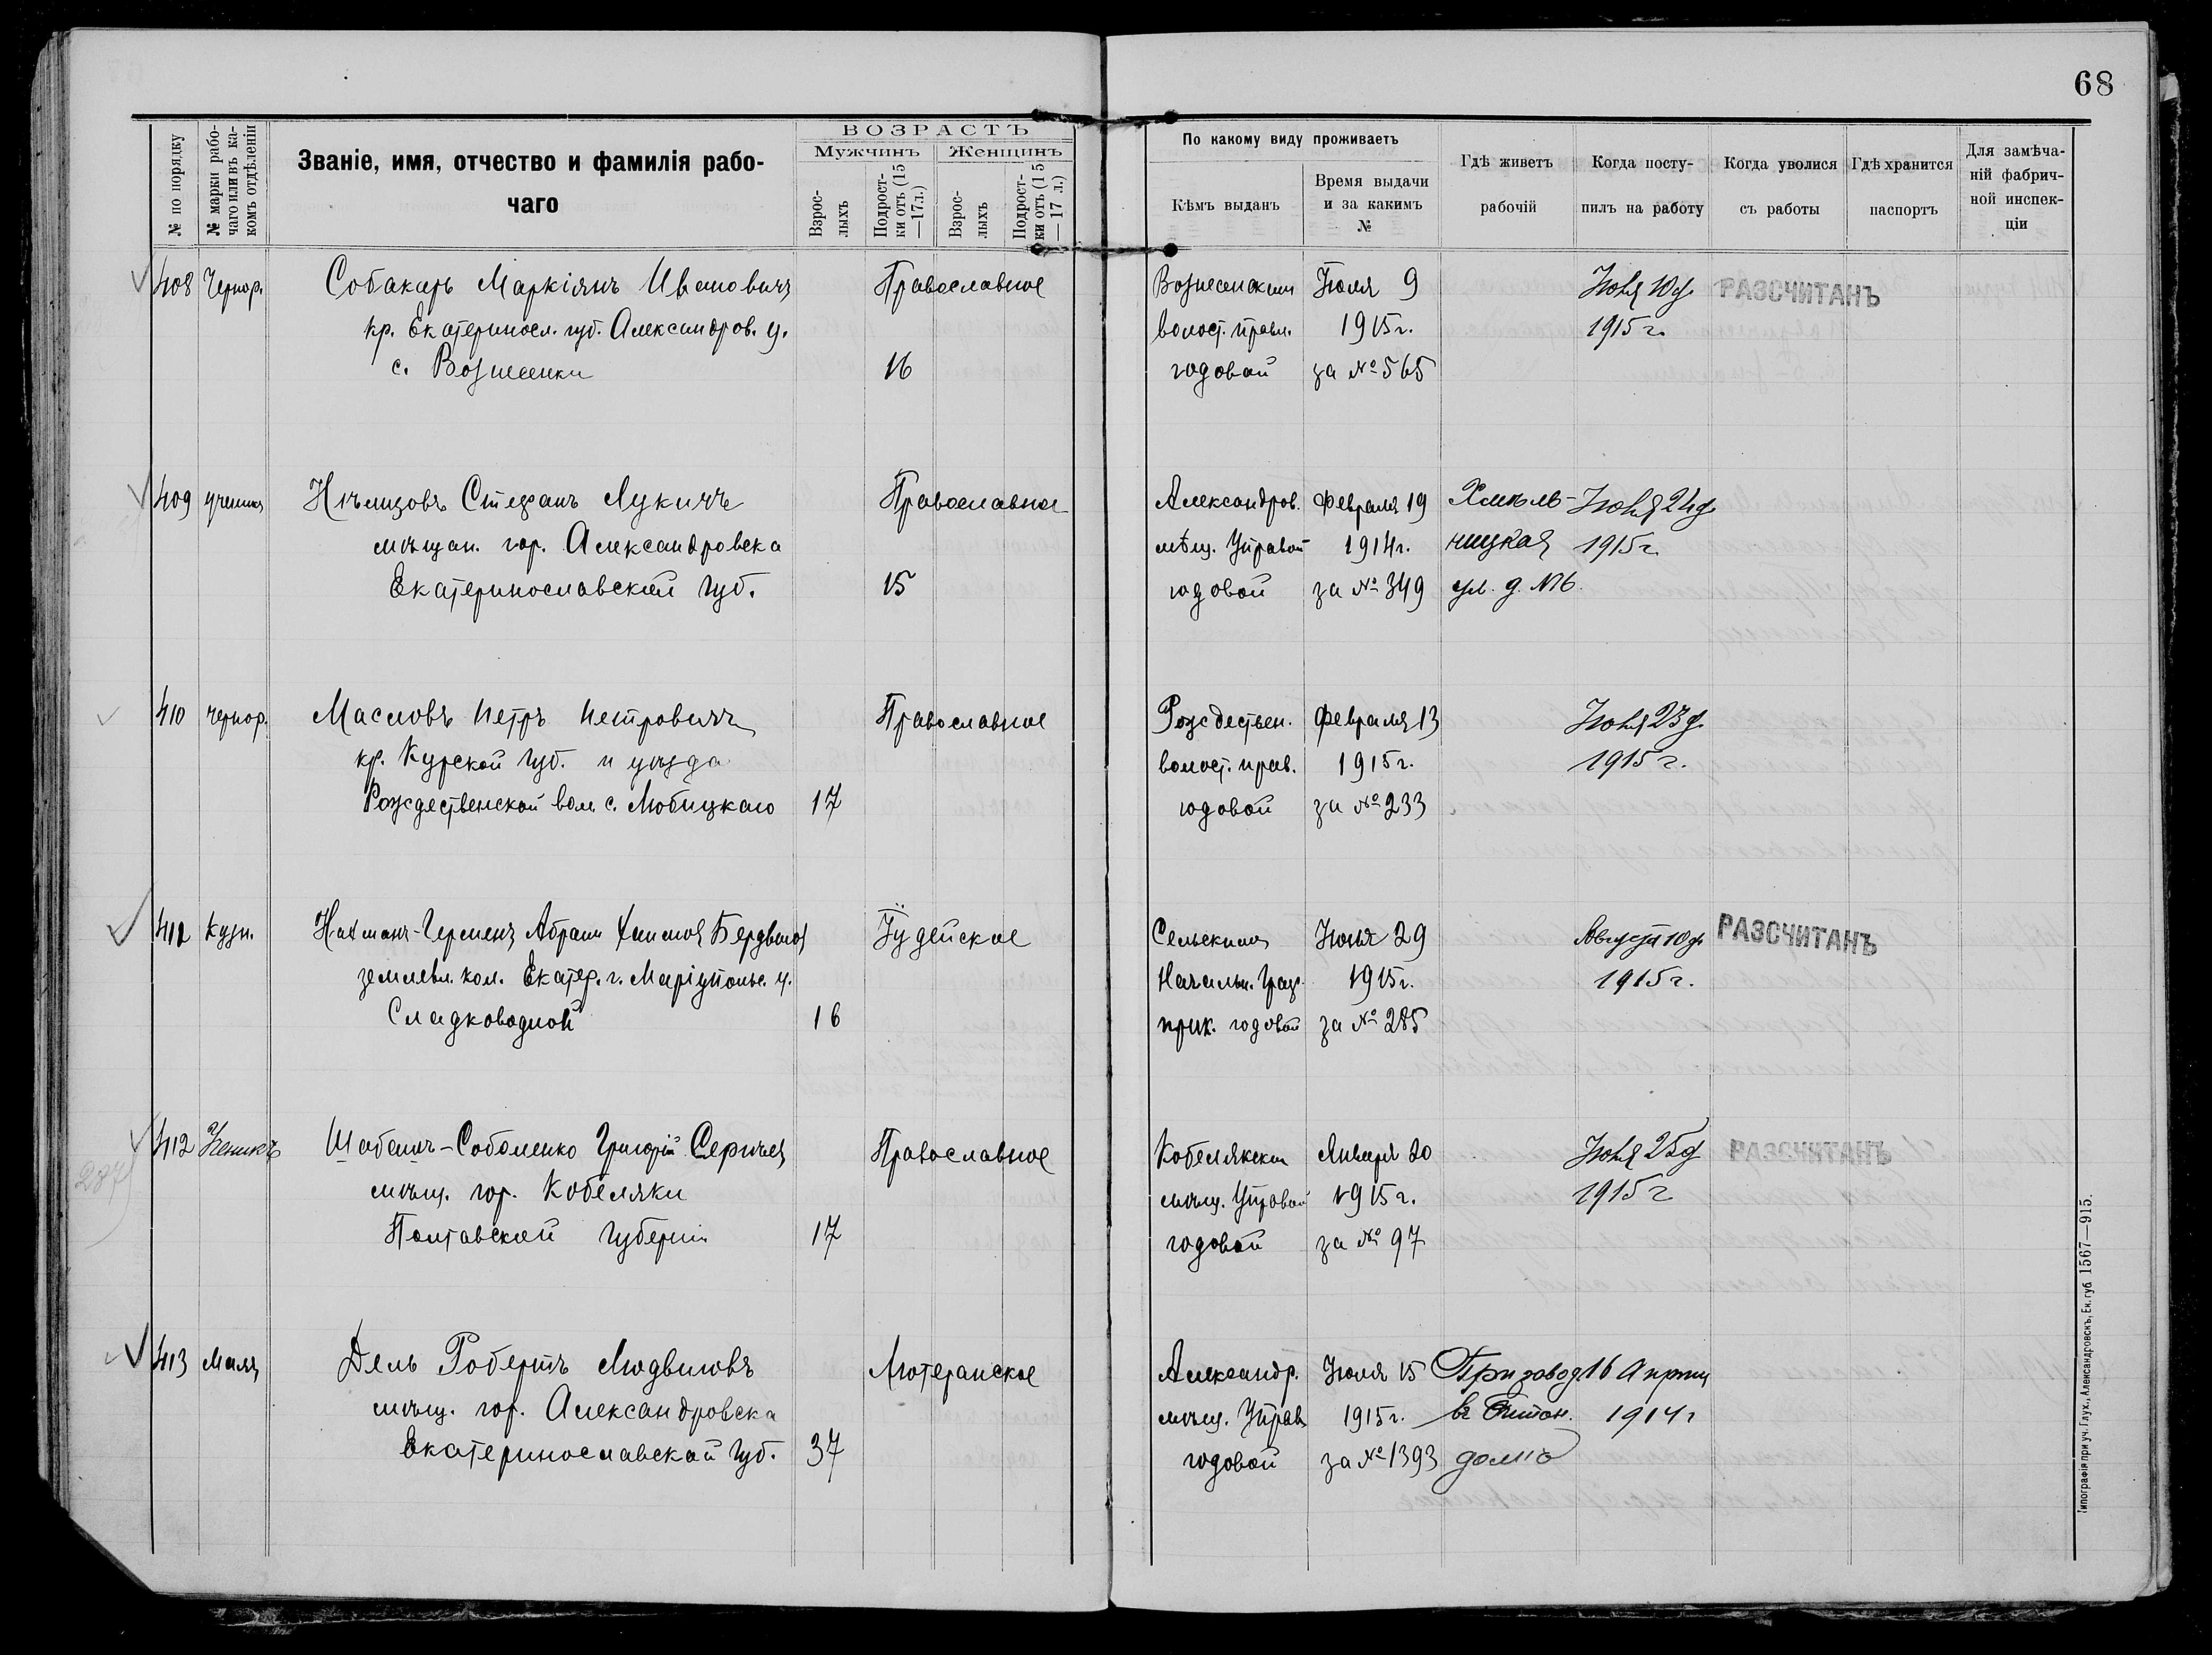 68
№ по порядку
№ марки рабо-
чаго или въ ка-
комъ отдѣленіи
Званіе, имя, отчество и фамилія рабо-
чаго
ВОЗРАСТЪ
Мужчинъ
Женщинъ
Взрос-
лыхъ
Подрост-
ки отъ (15
—17 л.)
Взрос-
лыхъ
Подрост-
ки отъ (15
—17 л.)
По какому виду проживаетъ
Кѣмъ выданъ
Время выдачи
и за какимъ
№
Гдѣ живетъ
рабочій
Когда посту-
пилъ на работу
Когда уволися
съ работы
Гдѣ хранится
паспортъ
Для замѣча-
ній фабрич-
ной инспек-
ціи
408 Чернор. Собакарь Маркіянъ Ивановичъ Православное Вознесенским Іюля 9 Іюня 10 д. РАЗСЧИТАНЪ
кр. Екатериносл. губ. Александров. у. волост. правл. 1915 г. 1915 г.
с. Вознесенки 16 годовой за № 565
409 ученикъ Нѣмцовъ Стефанъ Лукичъ Православное Александров. Февраля 19 Хмѣль- Іюня 24 д.
мѣщан. гор. Александровска мѣщ. Управой 1914 г. ницкая 1915 г.
Екатеринославской Губ. 15 годовой за № 349 ул. д. №6.
410 чернор. Масловъ Петръ Петровичъ Православное Рождествен. Февраля 13 Іюня 23 д.
кр. Курской губ. и уѣзда волост. прав. 1915 г. 1915 г.
Рождественской вол. с. Любицкаго 17 годовой за № 233
412 Кузн. Нахманъ-Герценъ Абрам Іудейское Сельскимъ Іюня 29 Августа 10 д. РАЗСЧИТАНЪ
землевл. кол. Екатер. г. Маріупольс. у. Начальн. 1915 г. 1915 г.
Сладководной 16 прик. годовой за № 285
287
412 Ученикъ Соболенко Григорій Православное Кобелякским Января 20 Іюня 25 д РАЗСЧИТАНЪ
мѣщ. гор. Кобеляки мѣщ. Управой 1915 г. 1915 г
Полтавской Губерніи 17 годовой за № 97
413 Маляр Дель Робертъ Людвиговъ Лютеранское Александр. Іюля 15 При завод 16 Апрѣля
мѣщ. гор. Александровска мѣщ. Управ 1915 г. въ 1914 г
Екатеринославской Губ. 37 годовой за № 1393 домѣ
Типографія при уч. Глух., Александровскъ, Ек. губ 1567—915.